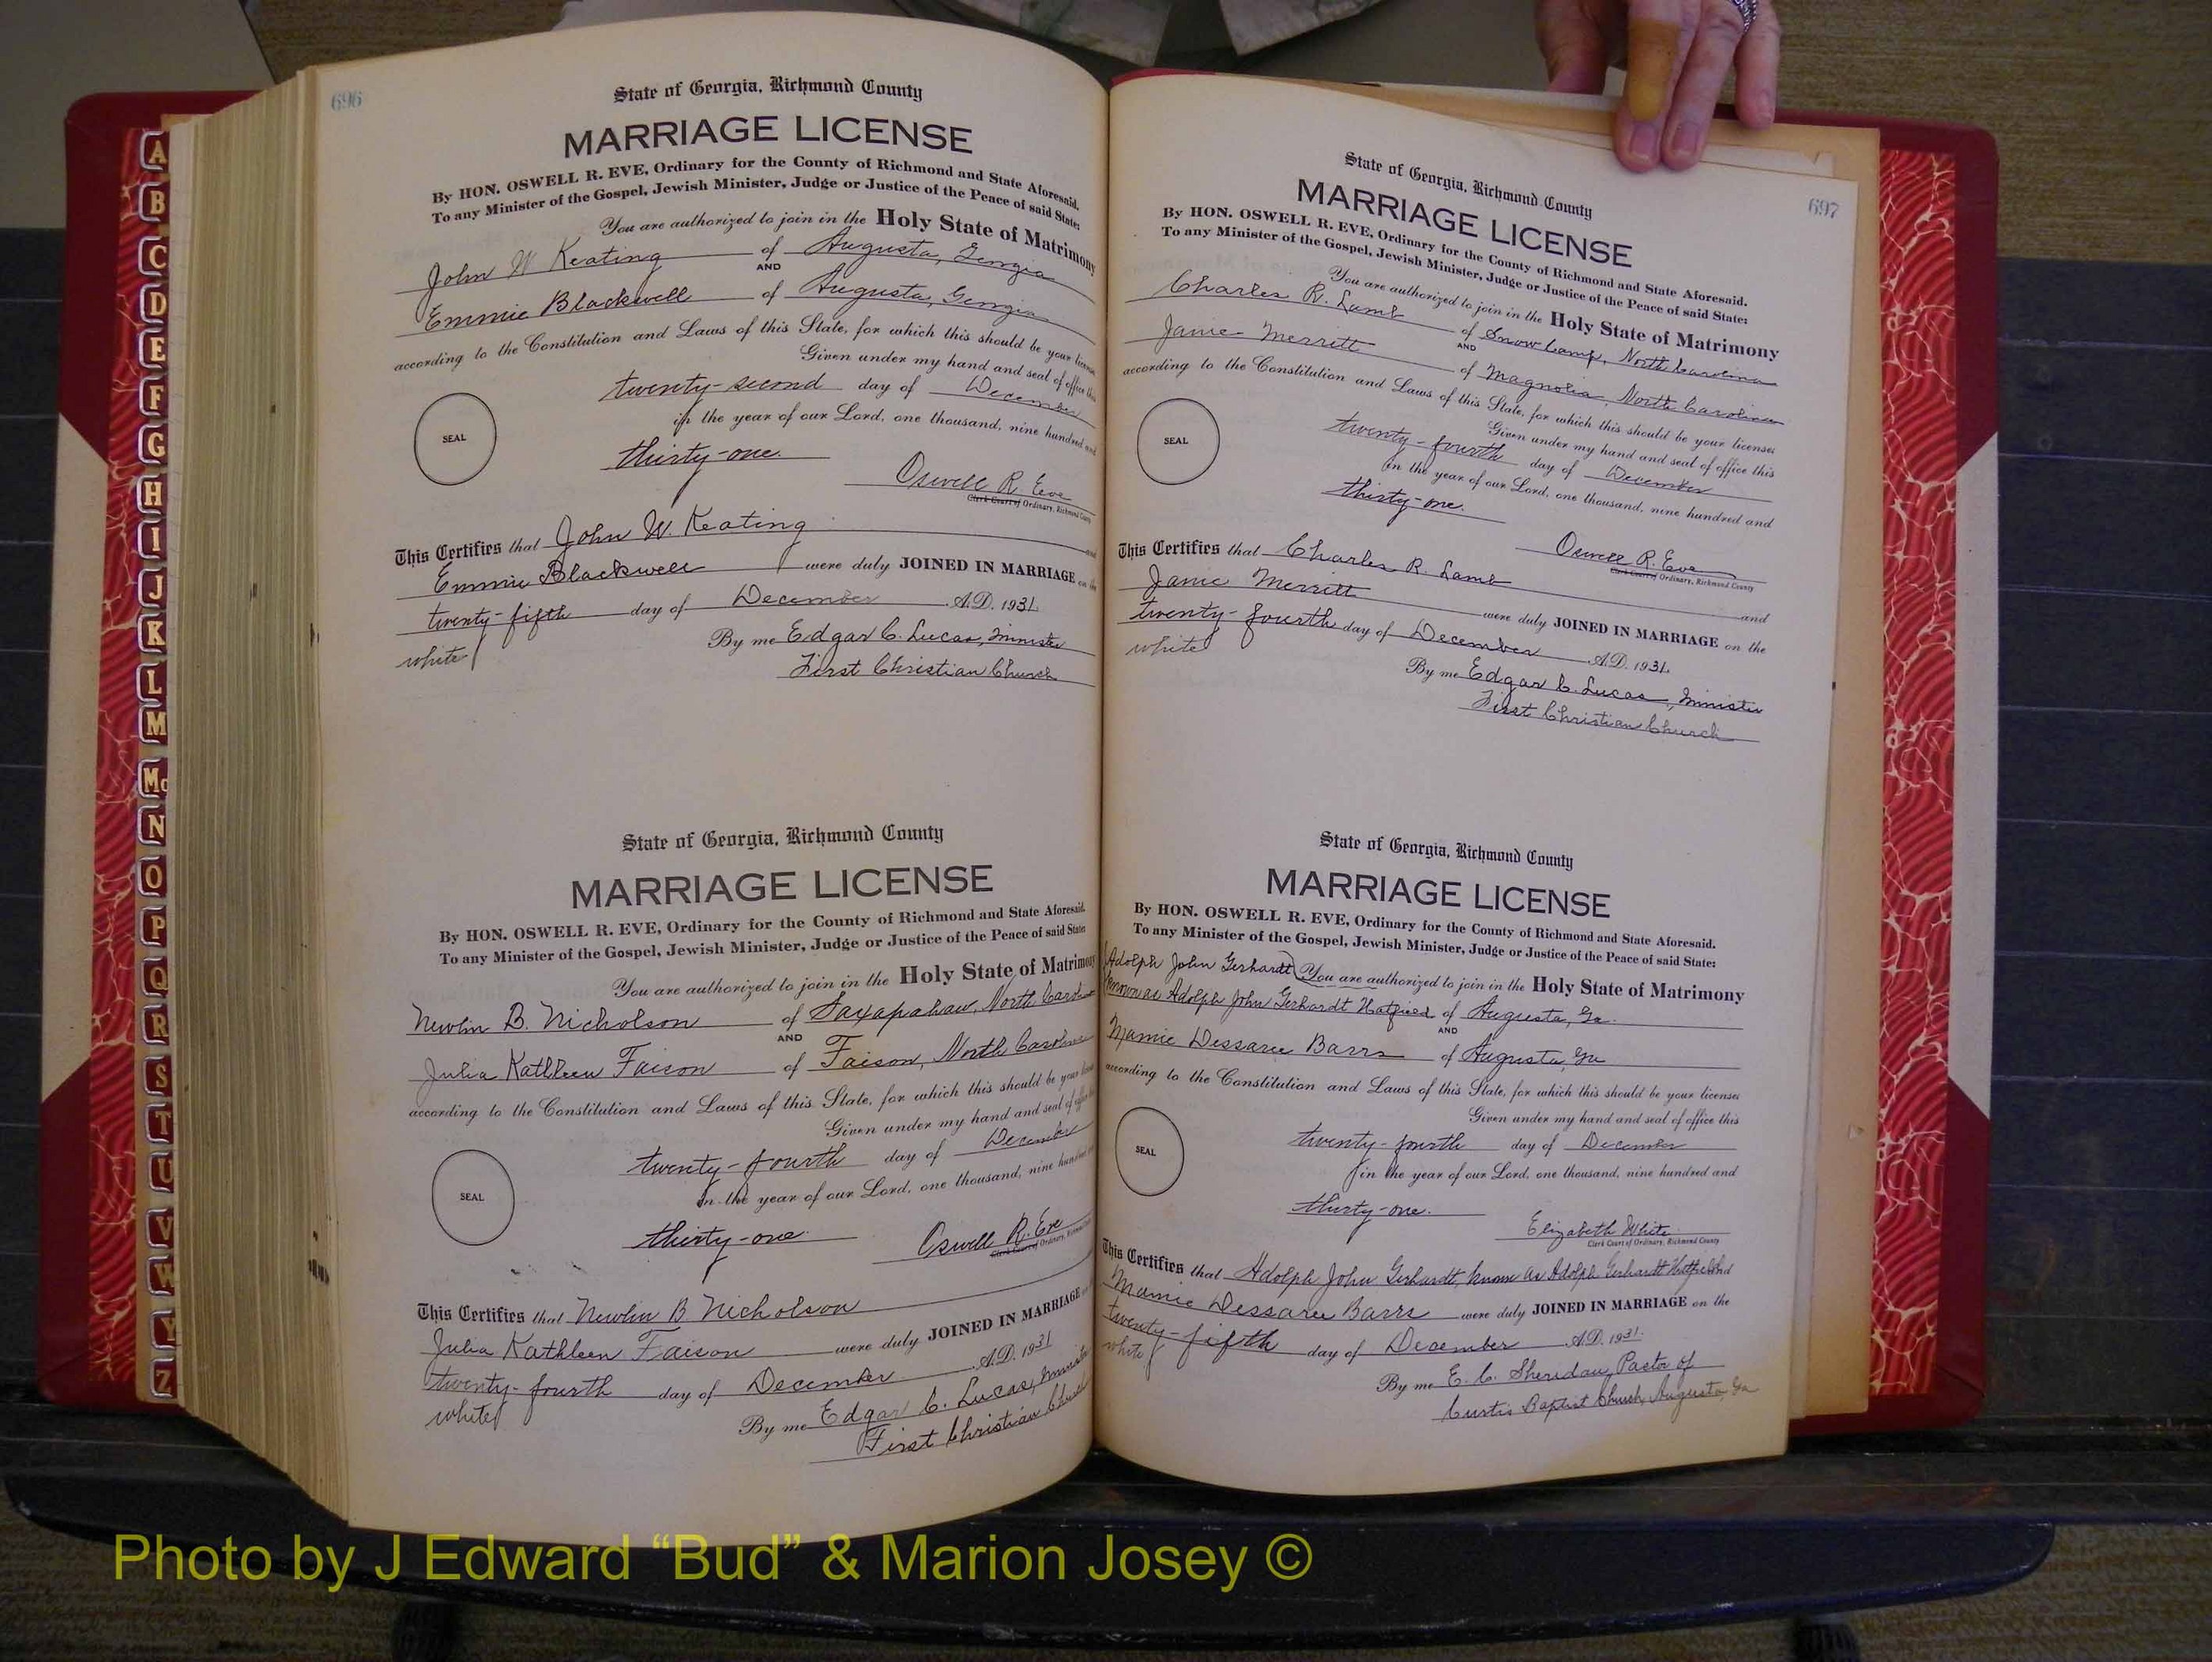 A
B
C
D
E
F
G
H
I
J
K
L
M
Mc
N
O
P
Q
R
S
T
U
V
W
Y
Z
696
State of Georgia, Richmond County
MARRIAGE LICENSE
By HON. OSWELL R. EVE, Ordinary for the County of Richmond and State Aforesaid.
To any Minister of the Gospel, Jewish Minister, Judge or Justice of the Peace of said State:
You are authorized to join in the Holy State of Matrimony
John W Keating of Augusta, Georgia
AND
Emmie Blackwell of Augusta, Georgia
according to the Constitution and Laws of this State, for which this should be your license
Given under my hand and seal of office this
twenty-second day of December
in the year of our Lord, one thousand, nine hundred and
SEAL
thirty-one
Oswell R. Eve
Clerk Court of Ordinary, Richmond County
This Certifies that John W. Keating and
Emmie Blackwell were duly JOINED IN MARRIAGE on the
twenty-fifth day of December A.D. 1931
white By me Edgar C. Lucas, Minister
First Christian Church
State of Georgia, Richmond County
MARRIAGE LICENSE
By HON. OSWELL R. EVE, Ordinary for the County of Richmond and State Aforesaid.
To any Minister of the Gospel, Jewish Minister, Judge or Justice of the Peace of said State:
You are authorized to join in the Holy State of Matrimony
Newlin B. Nicholson of Saxapahaw, North Carolina
AND
Julia Kathleen Faison of Faison, North Carolina
according to the Constitution and Laws of this State, for which this should be your license
Given under my hand and seal of office
twenty-fourth day of December
in the year of our Lord, one thousand, nine hundred
SEAL
thirty-one
Oswell R. Eve
Clerk Court of Ordinary,
This Certifies that Newlin B Nicholson
Julia Kathleen Faison were duly JOINED IN MARRIAGE
twenty-fourth day of December A.D. 1931
white By me Edgar C. Lucas, Minister
First Christian Church
697
State of Georgia, Richmond County
MARRIAGE LICENSE
By HON. OSWELL R. EVE, Ordinary for the County of Richmond and State Aforesaid.
To any Minister of the Gospel, Jewish Minister, Judge or Justice of the Peace of said State:
You are authorized to join in the Holy State of Matrimony
Charles R. Lamb of Snow Camp, North Carolina
AND
Janie Merritt of Magnolia, North Carolina
according to the Constitution and Laws of this State, for which this should be your licenses
Given under my hand and seal of office this
twenty-fourth day of December
in the year of our Lord, one thousand, nine hundred and
SEAL
thirty-one.
Oswell R. Eve
Clerk Court of Ordinary, Richmond County
This Certifies that Charles R. Lamb and
Janie Merritt were duly JOINED IN MARRIAGE on the
twenty-fourth day of December A.D. 1931
white By me Edgar C. Lucas, Minister
First Christian Church
State of Georgia, Richmond County
MARRIAGE LICENSE
By HON. OSWELL R. EVE, Ordinary for the County of Richmond and State Aforesaid.
To any Minister of the Gospel, Jewish Minister, Judge or Justice of the Peace of said State:
(Adolph John Gerhardt) You are authorized to join in the Holy State of Matrimony
Known as Adolph John Gerhardt Hatfield of Augusta, Ga.
AND
Mamie Dessaree Barrs of Augusta, Ga
according to the Constitution and Laws of this State, for which this should be your licenses
Given under my hand and seal of office this
twenty-fourth day of December
in the year of our Lord, one thousand, nine hundred and
SEAL
thirty-one.
Elizabeth White
Clerk Court of Ordinary, Richmond County
This Certifies that Adolph John Gerhardt, known as Adolph Gerhardt Hatfield and
Mamie Dessaree Barrs were duly JOINED IN MARRIAGE on the
twenty-fifth day of December A.D. 1931.
white By me E. C. Sheridan, Pastor of
Curtis Baptist Church, Augusta, Ga
Photo by J Edward “Bud” & Marion Josey ©